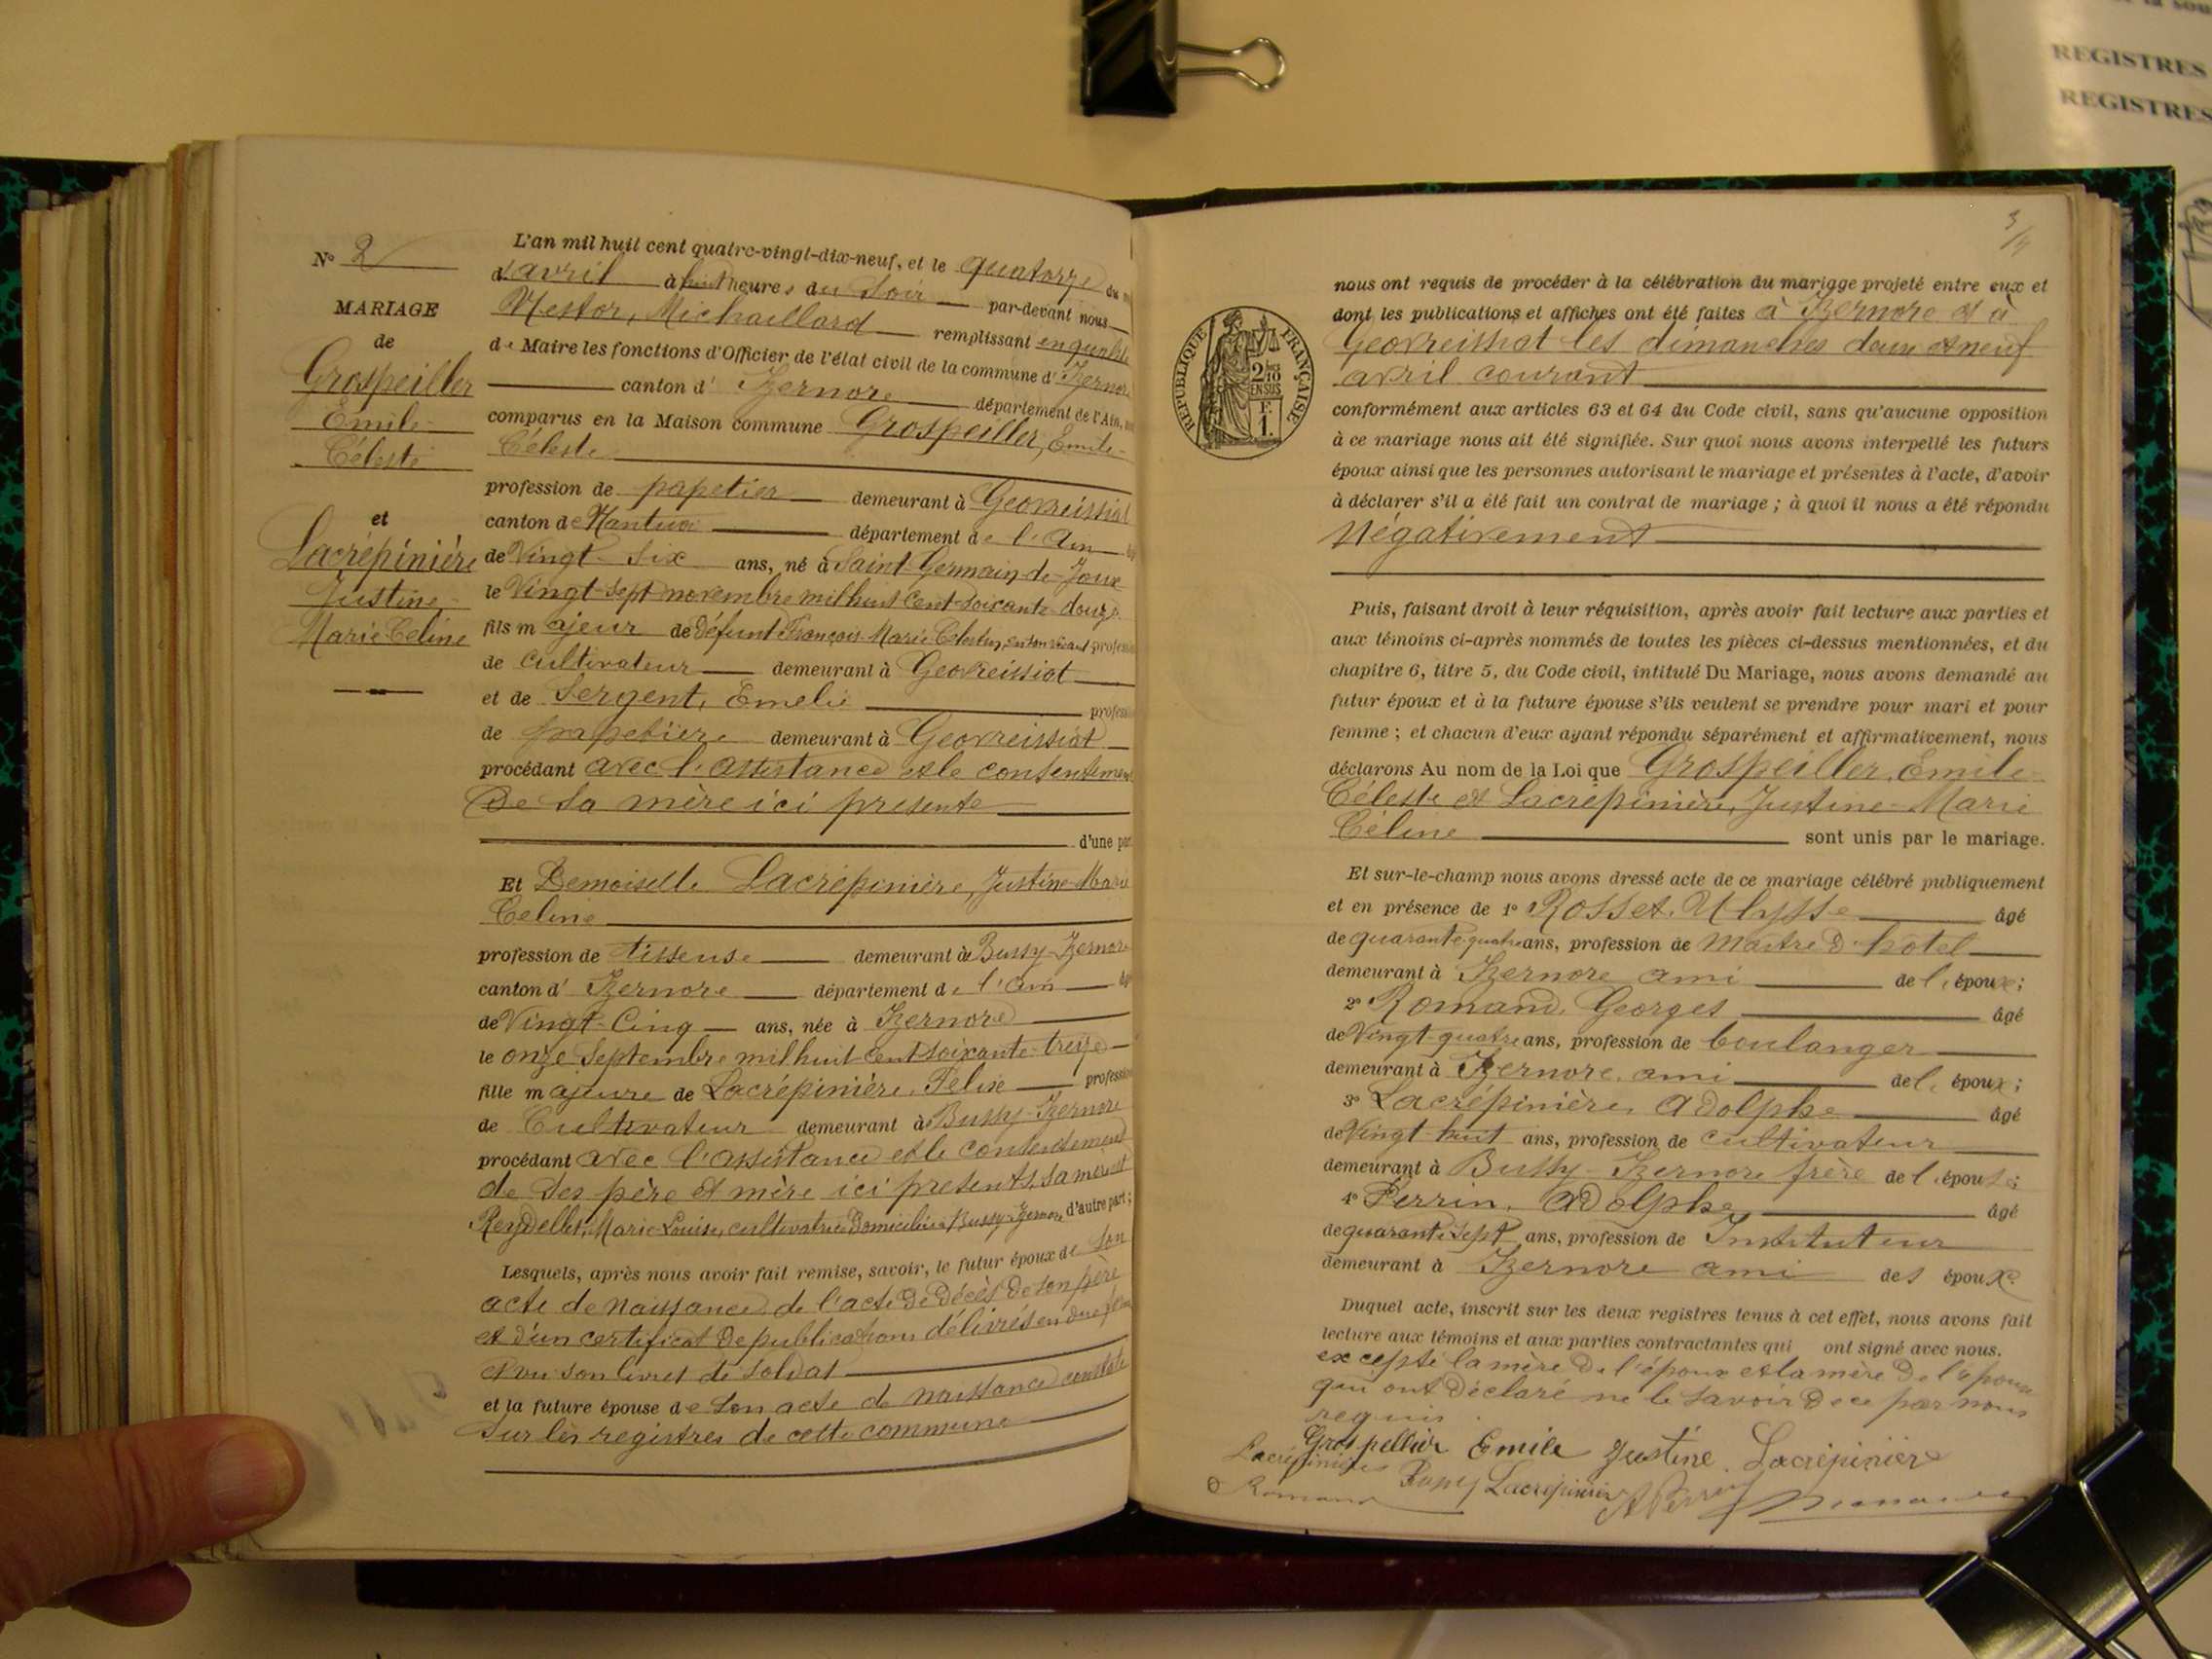 N° 2
MARIAGE
de
Grospeiller
Emile
Céleste
et
Lacrépinière
Justine
Marie Celine
L'an mil huit cent quatre-vingt-dix-neuf, et le quatorze du
d'avril à huit heures du Soir par-devant nous
Nestor, Michaillard remplissant en qualité
de Maire les fonctions d'Officier de l'état civil de la commune d'Izernore
canton d' Izernore département de l'Ain,
comparus en la Maison commune Grospeiller, Emile-
Céleste
profession de papetier demeurant à Geovreissiat
canton de Nantua département de l'Ain
de Vingt-Six ans, né à Saint Germain-de-Joux
le Vingt-Sept novembre mil huit Cent-Soixante-douze
fils majeur de Défunt François-Marie Celestin, en son vivant profession
de cultivateur demeurant à Geovreissiat
et de Sergent, Emelie profession
de papetière demeurant à Geovreissiat
procédant avec l'assistance et le consentement
De sa mère ici presente
d'une part
Et Demoiselle Lacrépinière, Justine-Marie
Celine
profession de tisseuse demeurant à Bussy-Izernore
canton d' Izernore département de l'Ain
de Vingt-Cinq ans, née à Izernore
le onze Septembre mil huit Cent soixante-treize
fille majeure de Lacrépinière, Félix profession
de Cultivateur demeurant à Bussy-Izernore
procédant avec l'assistance et le consentement
de ses père et mère ici presents, sa mère est
Reydellet, Marie Louise, cultivatrice Domiciliée à Bussy-Izernore d'autre part ;
Lesquels, après nous avoir fait remise, savoir, le futur époux de Son
acte de naissance, de l'acte De Décès de son père
et d'un certificat de publications délivrés en due forme
et vu son livret de Soldat
et la future épouse de Son acte de naissance constaté
Sur les registres de cette commune
3
RÉPUBLIQUE FRANÇAISE
2/10 EN SUS
F.
1.
nous ont requis de procéder à la célébration du mariage projeté entre eux et
dont les publications et affiches ont été faites à Izernore et à
Geovreissiat les dimanches deux et neuf
avril courant
conformément aux articles 63 et 64 du Code civil, sans qu'aucune opposition
à ce mariage nous ait été signifiée. Sur quoi nous avons interpellé les futurs
époux ainsi que les personnes autorisant le mariage et présentes à l'acte, d'avoir
à déclarer s'il a été fait un contrat de mariage ; à quoi il nous a été répondu
Négativement
Puis, faisant droit à leur réquisition, après avoir fait lecture aux parties et
aux témoins ci-après nommés de toutes les pièces ci-dessus mentionnées, et du
chapitre 6, titre 5, du Code civil, intitulé Du Mariage, nous avons demandé au
futur époux et à la future épouse s'ils veulent se prendre pour mari et pour
femme ; et chacun d'eux ayant répondu séparément et affirmativement, nous
déclarons Au nom de la Loi que Grospeiller, Emile
Céleste et Lacrépinière, Justine-Marie
Céline sont unis par le mariage.
Et sur-le-champ nous avons dressé acte de ce mariage célébré publiquement
et en présence de 1° Rosset, Ulysse âgé
de quarante-quatre ans, profession de Maître d'hôtel
demeurant à Izernore ami de l'époux ;
2° Romand, Georges âgé
de Vingt-quatre ans, profession de boulanger
demeurant à Izernore, ami de l'époux ;
3° Lacrépinière, Adolphe âgé
de Vingt huit ans, profession de cultivateur
demeurant à Bussy-Izernore frère de l'épouse ;
4° Perrin, Adolphe, âgé
de quarante Sept ans, profession de Instituteur
demeurant à Izernore ami des époux
Duquel acte, inscrit sur les deux registres tenus à cet effet, nous avons fait
lecture aux témoins et aux parties contractantes qui ont signé avec nous.
excepté la mère De l'époux et la mère De l'épouse
qui ont Déclaré ne le savoir De ce par nous
requis
Grospellier Emile Justine Lacrépinière
Lacrépinière Lacrépinière A Perrin
Romand
REGISTRES
REGISTRES